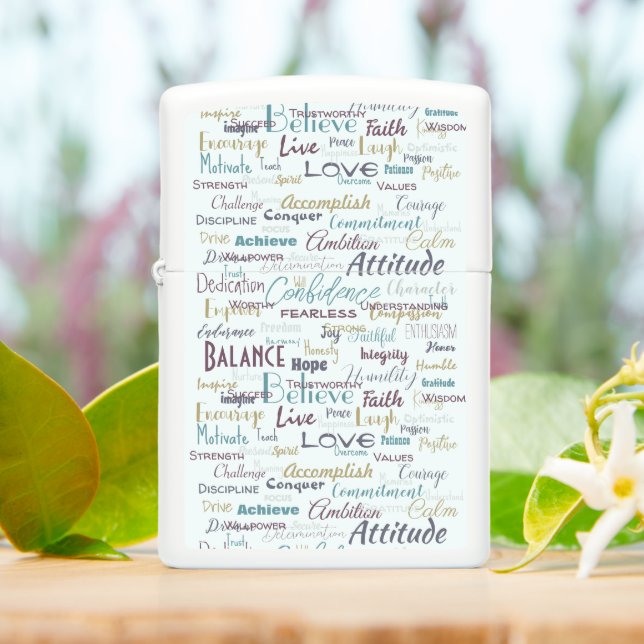 Inspire Succeed Trustworthy Humility Gratitude
imagine Believe Faith Kindness Wisdom
Encourage Live Peace Laugh Optimistic
Happiness Passion
Motivate Teach LOVE Patience Positive
Strength Present Spirit Overcome Values
Challenge Meaning Accomplish Memories Courage
Discipline Conquer Commitment Understand
FOCUS
Drive Achieve Ambition GRATITUDE Calm
Dream Willpower Determination Secure Attitude
Trust
Dedication Will Confidence Character
Empower Worthy FEARLESS Understanding Truth
Compassion
Endurance Freedom Joy Strong Faithful ENTHUSIASM
Harmony Honor
BALANCE Hope Honesty Integrity Humble
Inspire Nurture Trustworthy Humility Gratitude
imagine Succeed Believe Faith Kindness Wisdom
Encourage Live Peace Laugh Optimistic
Happiness Passion
Motivate Teach LOVE Patience Positive
Strength Present Spirit Overcome Values
Challenge Meaning Accomplish Memories Courage
Discipline Conquer Commitment Understand
FOCUS
Drive Achieve Ambition GRATITUDE Calm
Dream Willpower Determination Secure Attitude
Trust
Dedication Will Confidence Character